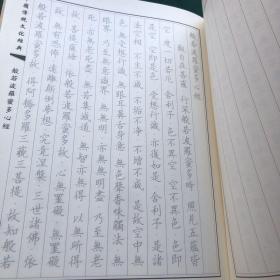 般若波羅蜜多心經
觀自在菩薩 行深般若波羅蜜多時 照見五蘊皆
空 度一切苦厄 舍利子 色不異空 空不異色 色即
是空 空即是色 受想行識 亦復如是 舍利子 是諸
法空相 不生不滅 不垢不淨 不增不減 是故空中無
色 無受想行識 無眼耳鼻舌身意 無色聲香味觸法 無
眼界 乃至無意識界 無無明 亦無無明盡 乃至無老
死 亦無老死盡 無苦集滅道 無智亦無得 以無所得
故 菩提薩埵 依般若波羅蜜多故 心無罣礙 無罣礙
故 無有恐怖 遠離顛倒夢想 究竟涅槃 三世諸佛 依
般若波羅蜜多故 得阿耨多羅三藐三菩提 故知般若
國傳統文化經典
般若波羅蜜多心經